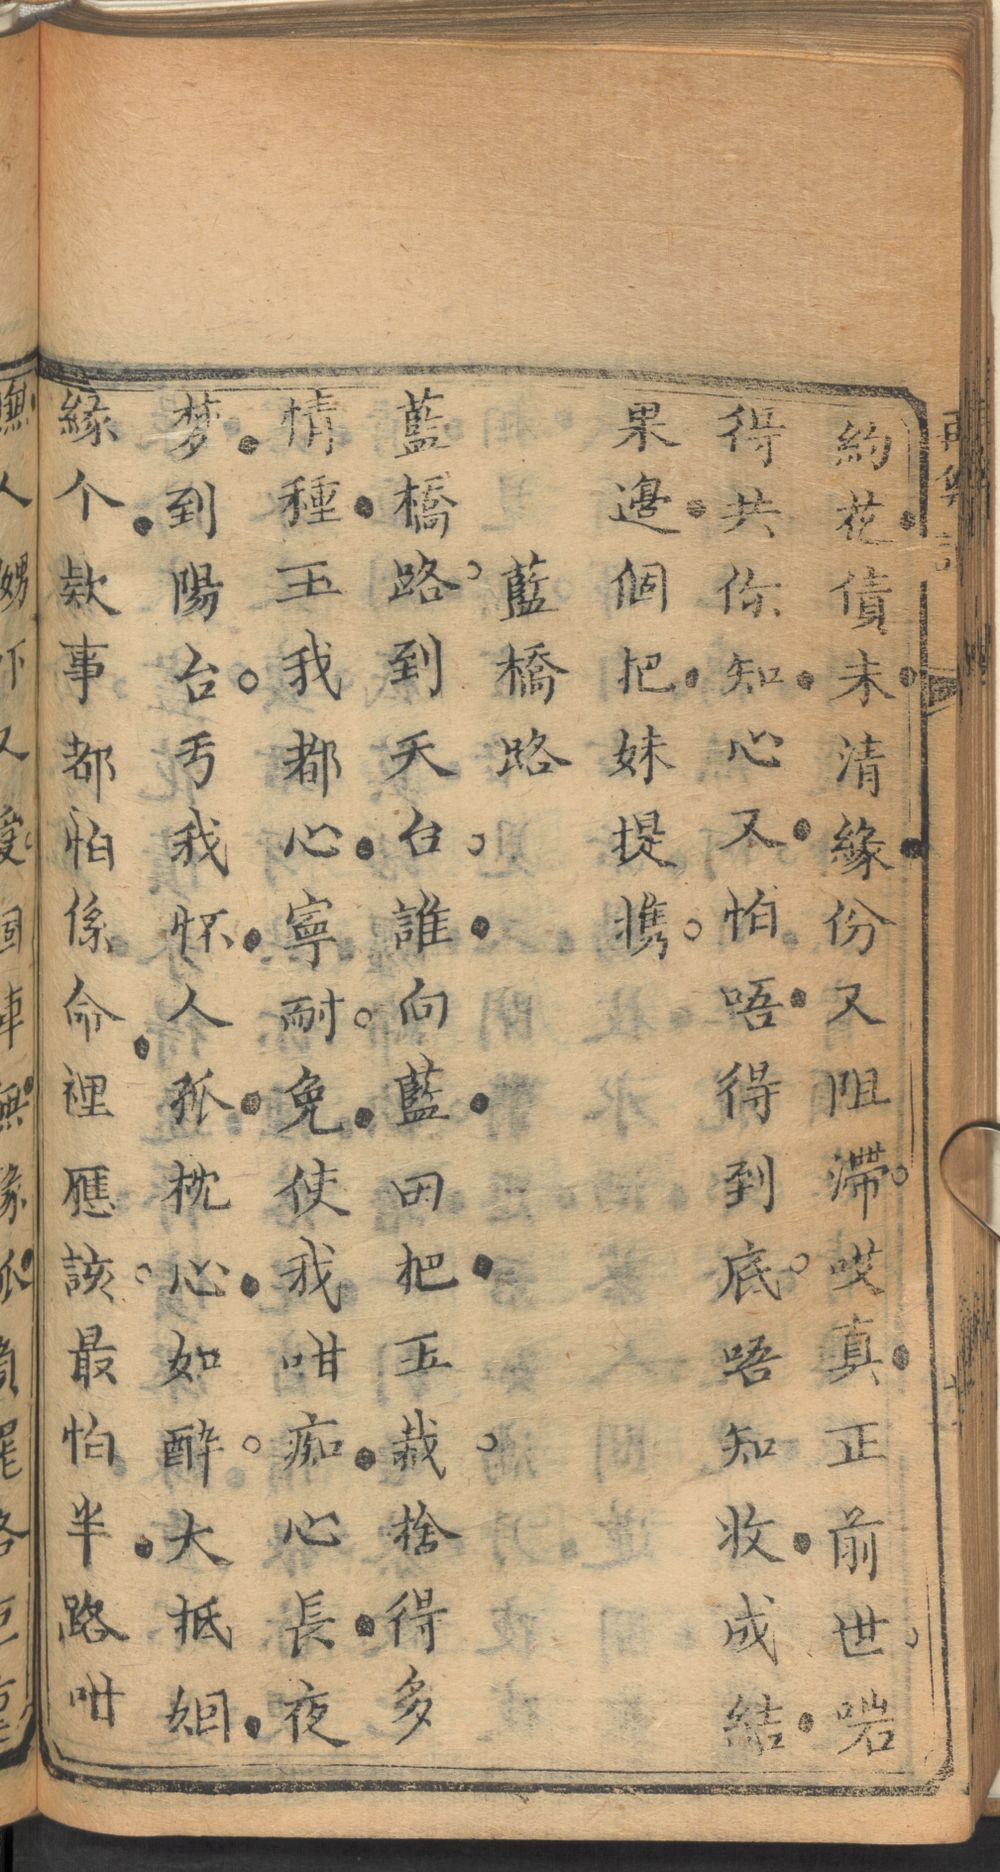 約花債未清緣份又阻滯哎真正前世啱
得共你知心又怕唔得到底唔知收成結
果邊個把妹提携
藍橋路
藍橋路到天台誰向藍田把玉栽捨得多
情種玉我都心寧耐免使我咁痴心長夜
梦到陽台丐我怀人孤枕心如醉大抵姻
緣个欵事都怕係命裡應該最怕半路咁